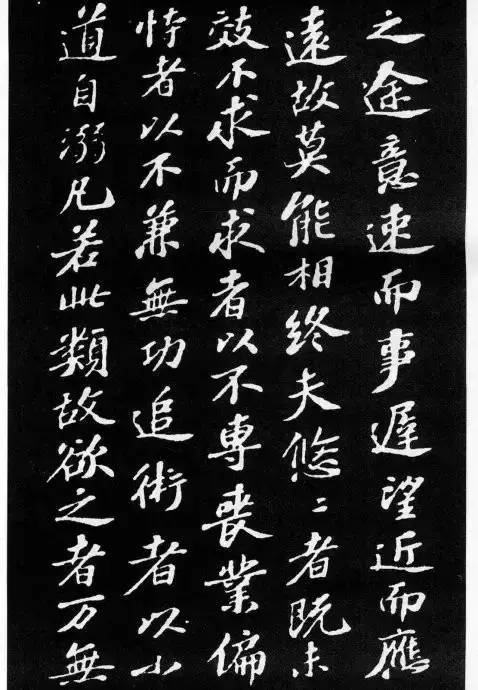 之途意速而事遲望近而應
遠故莫能相終夫悠〻者既未
效不求而求者以不專喪業偏
恃者以不兼無功追術者以小
道自溺凡若此類故欲之者万無